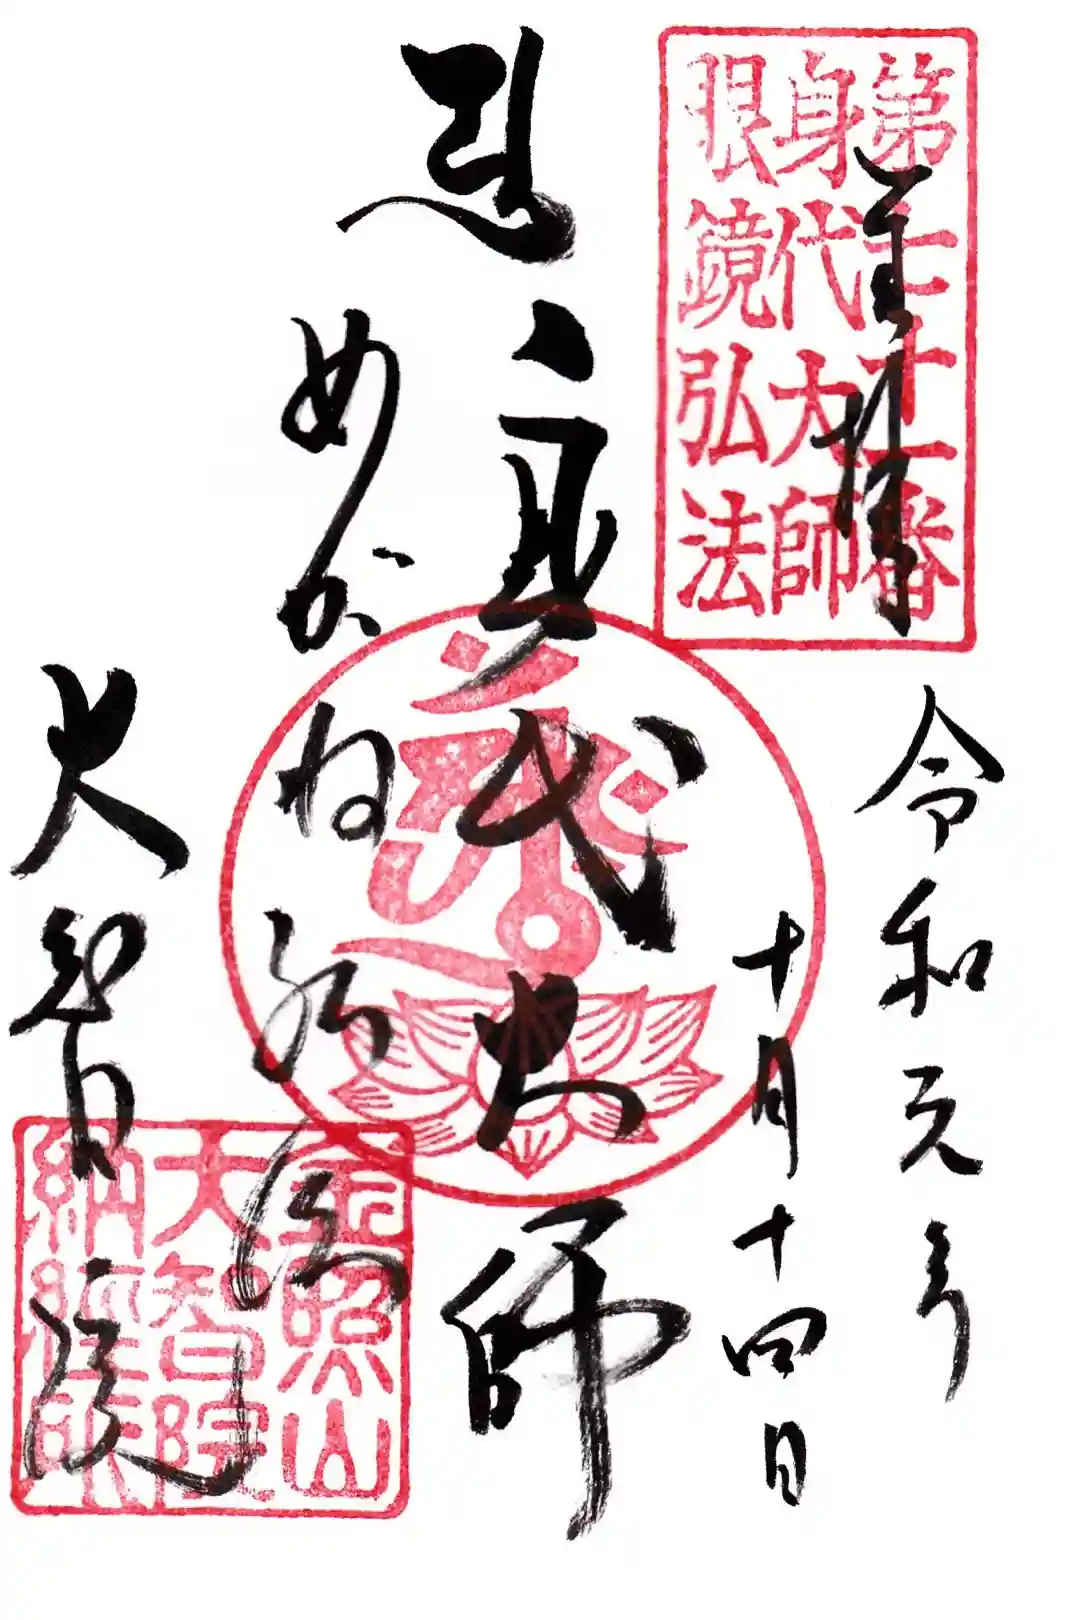 第七十一番
身代大師
眼鏡弘法
奉拝
令和元年
十月十四日
身代大師
めがね弘法
大智院
金照山
大智院
納経